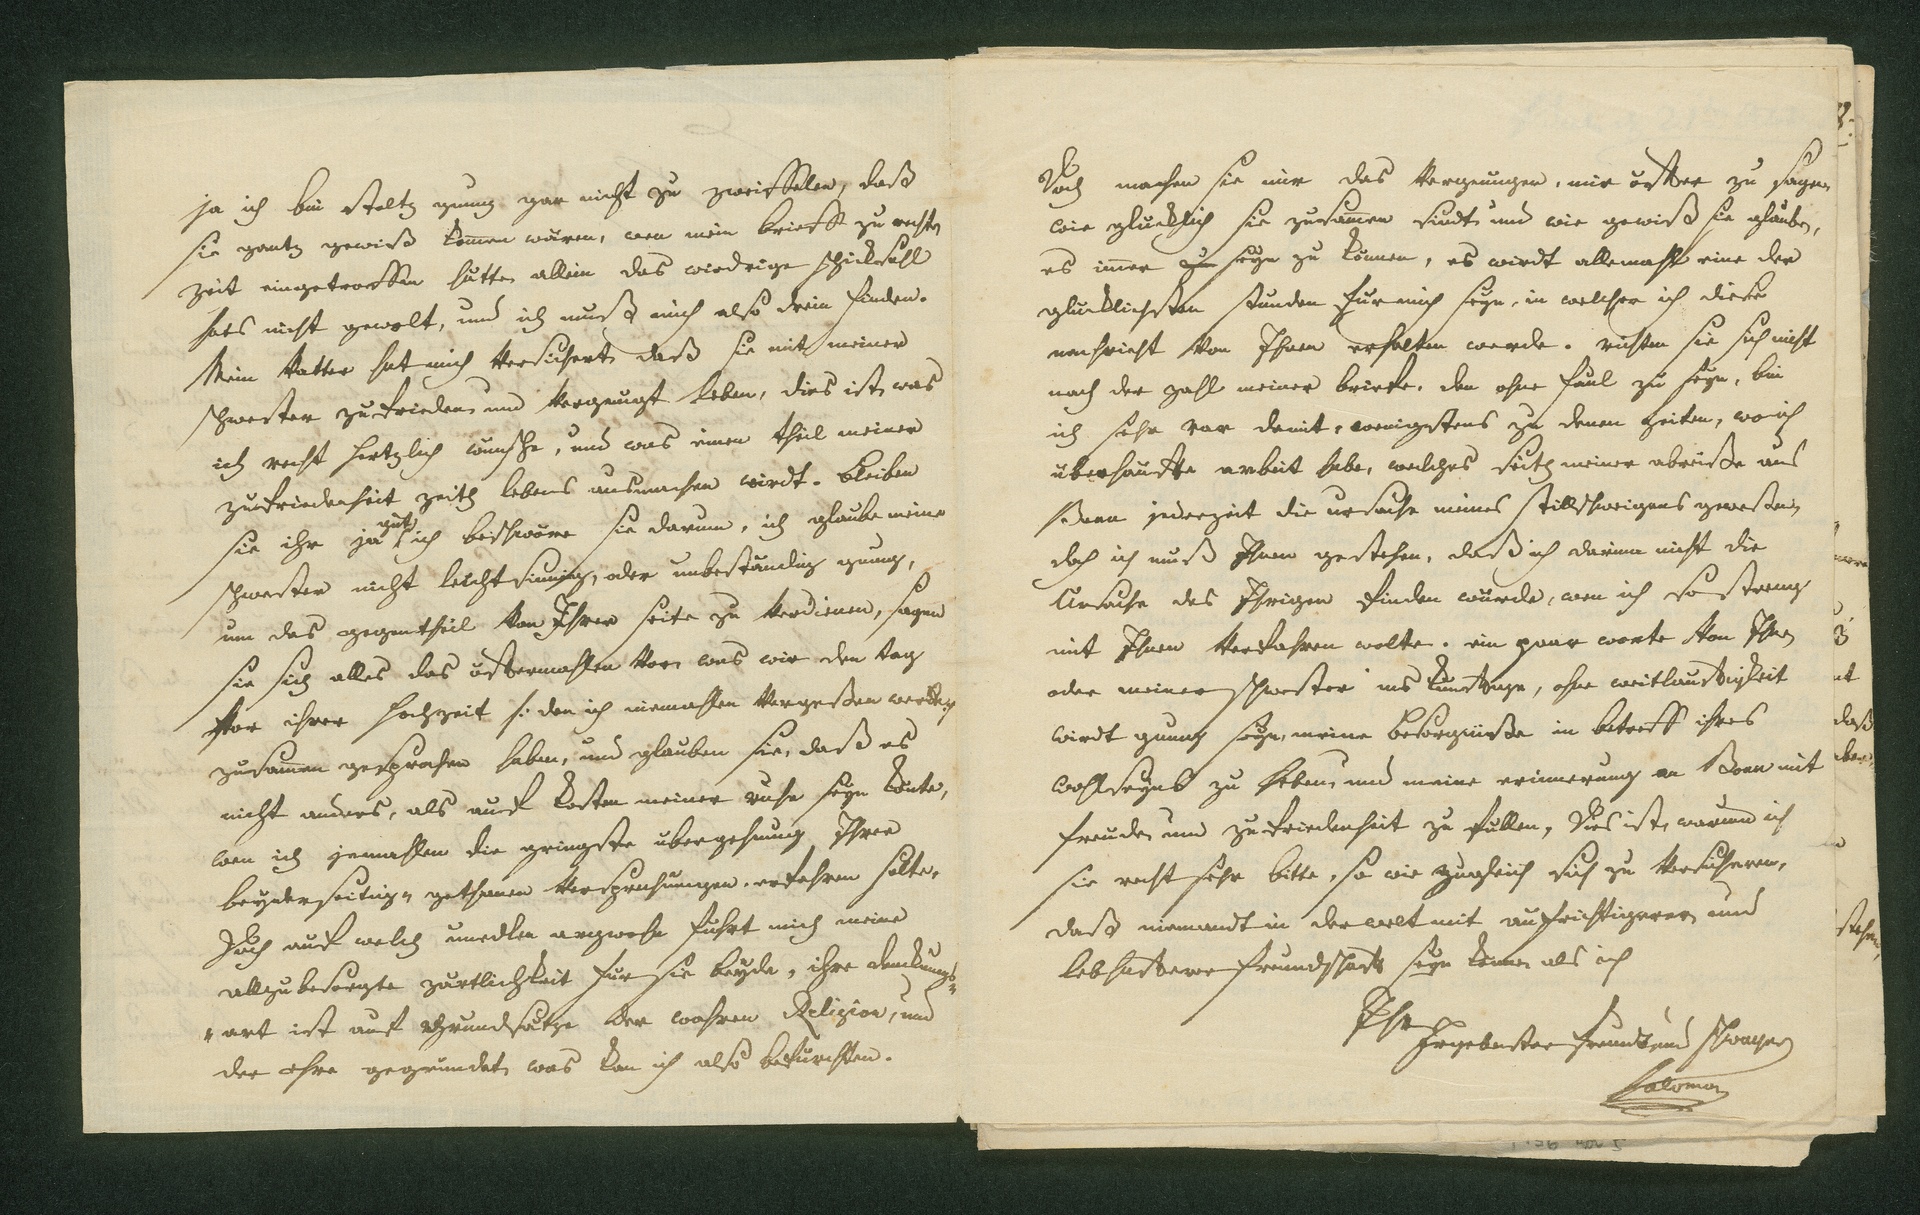 ja ich bin stoltz genug gar nicht zu zweiffelen, daß
sie gantz gewiß komen wären, wen mein brieff zu rechter
zeit eingetroffen hätte, allein das wiedrige schicksahl
hats nicht gewolt, und ich muß mich also drein finden.
Mein Vatter hat mich versichert, daß sie mit meiner
schwester zufrieden und vergnügt leben, dies ist, was
ich recht hertzlich wünsche, und was einen theil meiner
zufriedenheit zeit lebens ausmachen wirdt. bleiben
sie ihr ja gut, ich beschwöre sie darum, ich glaube meine
schwester nicht leichtsinnig, oder unbeständig genug,
um das gegentheil von Ihrer seite zu verdienen, sagen
sie sich alles das öftermahlen vor, was wir den tag
vor ihrer hochzeit /: den ich niemahlen vergeßen werde :/
zusamen gesprochen haben, und glauben sie, daß es
nicht anders, als auf kosten meiner ruhe seyn könte,
wen ich jemahlen die gringste übergehung Ihrer
beyderseitig gethanen versprechungen erfahren solte.
Doch auf welch unedlen argwohn führt mich meine
allzubesorgte zärtlichkeit für sie beyde, ihre denkungs=
=art ist auf Grundsätze der wahren Religion, und
der ehre gegründet, was kan ich also befürchten.
Doch machen sie mir das vergnügen, mir öfter zu sagen,
wie glücklich sie zusamen sindt und wie gewiß sie glauben,
es imer zu seyn zu können, es wirdt allemahl eine der
glücklichsten stunden für mich seyn, in welcher ich diese
nachricht von Ihnen erhalten werde. richten sie sich nicht
nach der zahl meiner briefe, den ohne faul zu seyn, bin
ich sehr rar damit, wenigstens zu denen zeiten, wo ich
überhäufte arbeit habe, welches seith meiner abreiße aus
Bonn jederzeit die ursache meines stillschweigens geweßen,
doch ich muß Ihnen gestehen, daß ich darinn nicht die
Ursache des Ihrigen finden würde, wen ich so streng
mit Ihnen verfahren wolte. ein paar worte von Ihnen
oder meiner schwester ins künftige, ohne weitläuftigkeit
wirdt genug seyn, meine besorgniße in betreff ihres
wohlseyns zu heben, und meine erinnerung an Bonn mit
freude, und zufriedenheit zu füllen, dies ist, warum ich
sie recht sehr bitte, so wie zugleich sich zu versicheren,
daß niemandt in der welt mit aufrichtigerer, und
lebhafterer freundschaft seyn könne als ich
Ihr
Ergebenster freundt und schwager
Salomon